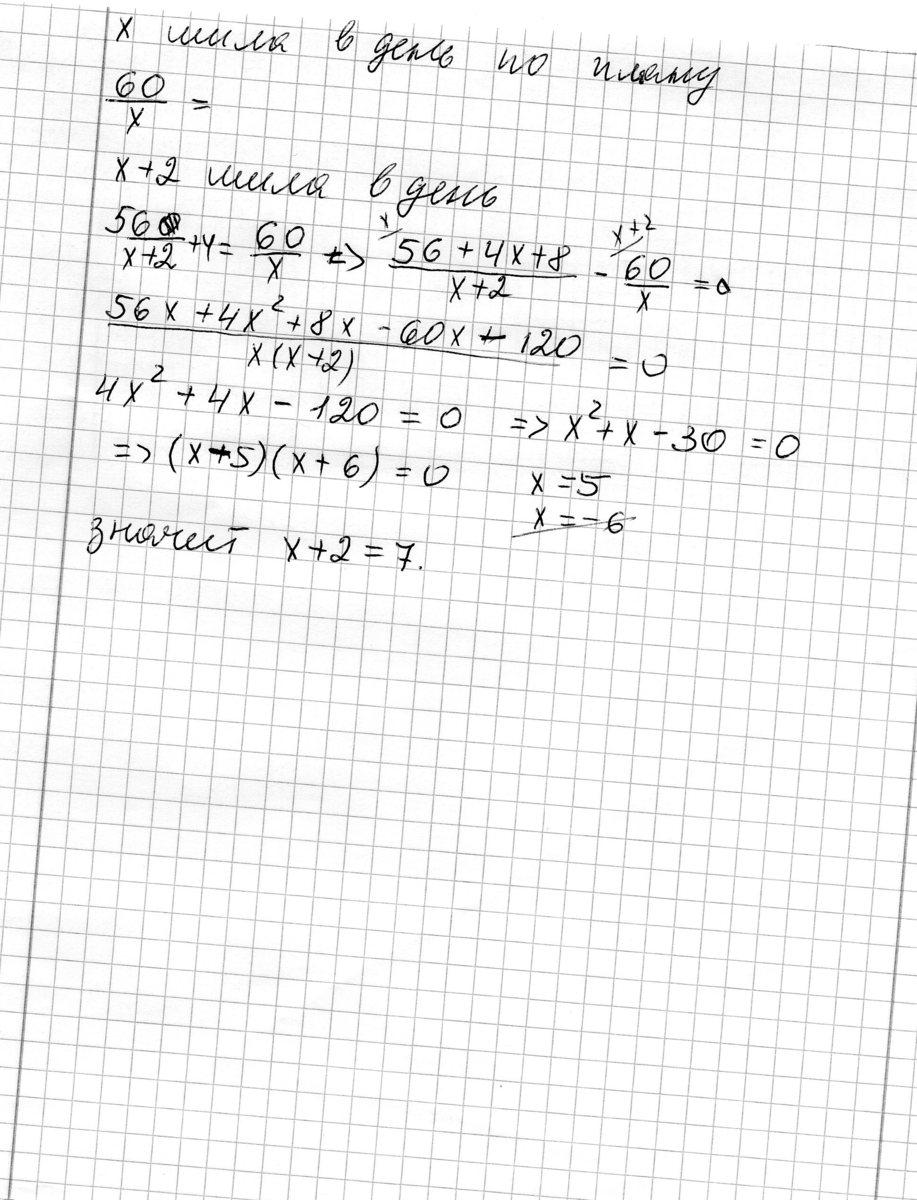 x шила в день по плану
60/x =
x+2 шила в день
56/(x+2) +4 = 60/x => x/ (56+4x+8)/(x+2) - x+2/ 60/x = 0
(56x+4x²+8x-60x-120)/(x(x+2)) = 0
4x²+4x-120=0 => x²+x-30=0
=> (x-5)(x+6)=0 x=5
x=-6
значит x+2=7.